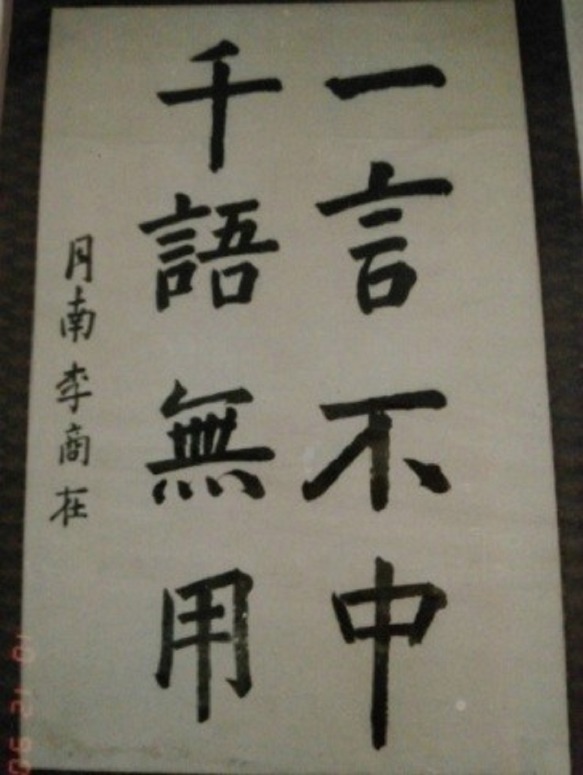 一言不中
千語無用
月南李商在